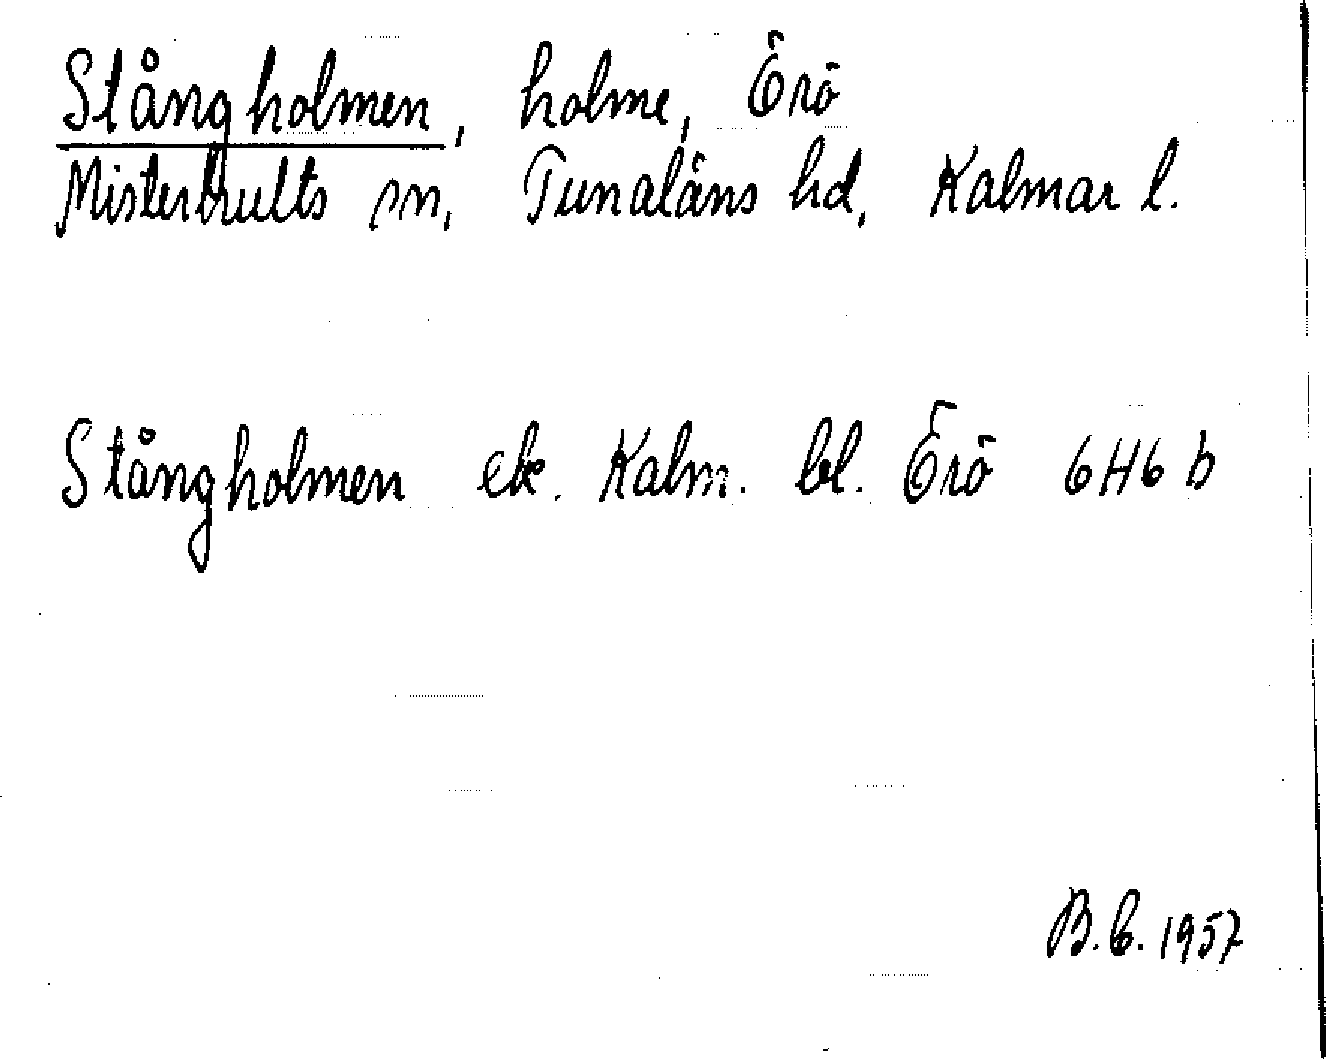 Stångholmen, holme, Örö
Misterhults sn, Tunaläns hd, Kalmar l.
Stångholmen ek. Kalm. bl. Örö 6H6 b
1957